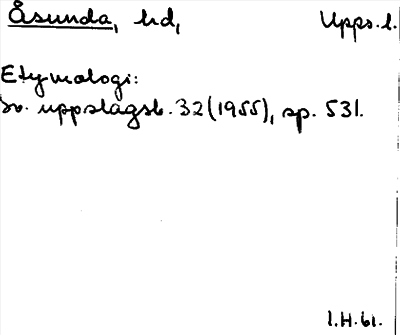 Åsunda, hd, Upps. l.
Etymologi:
Sv. uppslagsb. 32 (1955), sp. 531.
I.H.61.